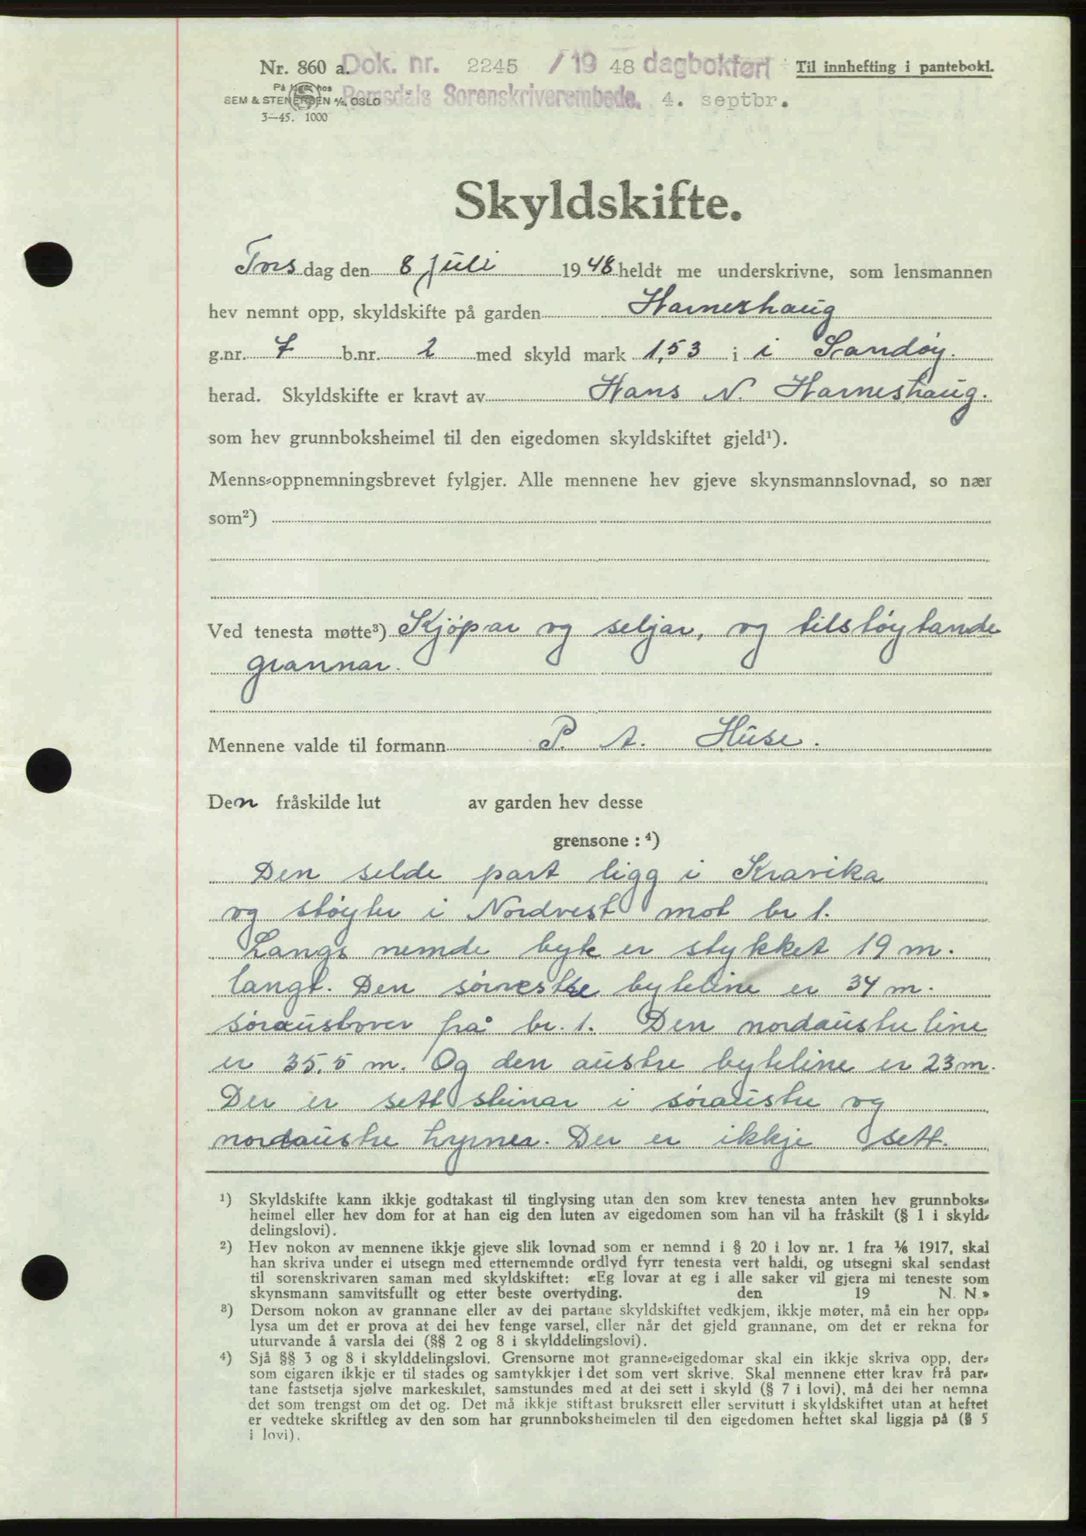 Nr. 860 a. Dok. nr. 2245 / 19 48 dagbokført Til innhefting i pantebok!
På lager hos
SEM & STENERSEN A/S, OSLO Romsdals Sorenskriverembede, 4. septbr.
3—45. 1000
Skyldskifte.
Tors dag den 8 juli 19 48 heldt me underskrivne, som lensmannen
hev nemnt opp, skyldskifte på garden Harneshaug
g.nr. 7 b.nr. 2 med skyld mark 1,53 i i Sandøy.
herad. Skyldskifte er kravt av Hans N. Harneshaug.
som hev grunnboksheimel til den eigedomen skyldskiftet gjeld¹).
Menns-oppnemningsbrevet fylgjer. Alle mennene hev gjeve skynsmannslovnad, so nær
som²)
Ved tenesta møtte³) Kjøpar og seljar, og tilstøytande
grannar.
Mennene valde til formann P. A. Huse.
Den fråskilde lut av garden hev desse
grensone : ⁴)
Den selde part ligg i Kravika
og støyter i Nordvest mot br 1.
Langs nemde byte er stykket 19 m.
langt. Den sørvestre byteline er 34 m.
søraustover frå br. 1. Den nordaustre line
er 35,5 m. Og den austre byteline er 23 m.
Der er sett steinar i søraustre og
nordaustre hyrner. Der er ikkje sett.
¹) Skyldskifte kann ikkje godtakast til tinglysing utan den som krev tenesta anten hev grunnboks-
heimel eller hev dom for at han eig den luten av eigedomen som han vil ha fråskilt (§ 1 i skyld-
delingslovi).
²) Hev nokon av mennene ikkje gjeve slik lovnad som er nemnd i § 20 i lov nr. 1 fra 1/6 1917, skal
han skriva under ei utsegn med etternemnde ordlyd fyrr tenesta vert haldi, og utsegni skal sendast
til sorenskrivaren saman med skyldskiftet: «Eg lovar at eg i alle saker vil gjera mi teneste som
skynsmann samvitsfullt og etter beste overtyding. den 19 N. N.»
³) Dersom nokon av grannane eller av dei partane skyldskiftet vedkjem, ikkje møter, må ein her opp-
lysa um det er prova at dei hev fenge varsel, eller når det gjeld grannane, om det er rekna for
uturvande å varsla dei (§§ 2 og 8 i skylddelingslovi).
⁴) Sjå §§ 3 og 8 i skylddelingslovi. Grensorne mot granne-eigedomar skal ein ikkje skriva opp, der-
som eigaren ikkje er til stades og samtykkjer i det som vert skrive. Skal mennene etter krav frå par-
tane fastsetja sjølve markeskilet, samstundes med at dei sett i skyld (§ 7 i lovi), må dei her nemna
det som trengst om det og. Det må ikkje stiftast bruksrett eller servitutt i skyldskiftet utan at heftet
er vedteke skriftleg av den som har grunnboksheimelen til den eigedomen heftet skal liggja på (§ 5
i lovi).